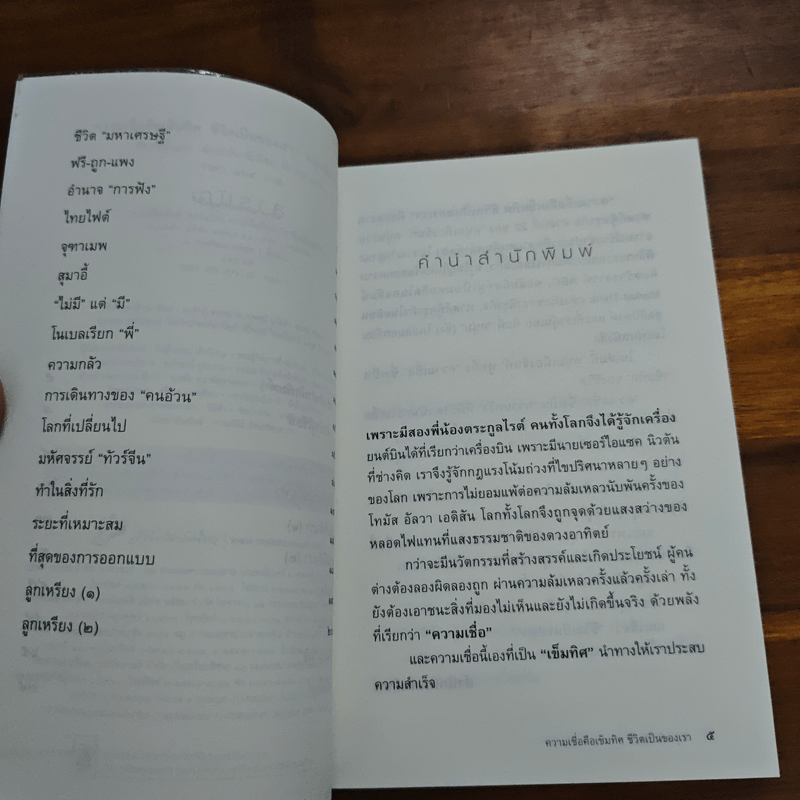 ชีวิต “มหาเศรษฐี”
ฟรี-ถูก-แพง
อำนาจ “การฟัง”
ไทยไฟต์
จุฑาเมพ
สุมาอี้
“ไม่มี” แต่ “มี”
โนเบลเรียก “พี่”
ความกลัว
การเดินทางของ “คนอ้วน”
โลกที่เปลี่ยนไป
มหัศจรรย์ “ทัวร์จีน”
ทำในสิ่งที่รัก
ระยะที่เหมาะสม
ที่สุดของการออกแบบ
ลูกเหรียง (๑)
ลูกเหรียง (๒)
คำนำสำนักพิมพ์
เพราะมีสองพี่น้องตระกูลไรต์ คนทั้งโลกจึงได้รู้จักเครื่อง
ยนต์บินได้ที่เรียกว่าเครื่องบิน เพราะมีนายเซอร์ไอแซค นิวตัน
ที่ช่างคิด เราจึงรู้จักกฎแรงโน้มถ่วงที่ไขปริศนาหลายๆ อย่าง
ของโลก เพราะการไม่ยอมแพ้ต่อความล้มเหลวนับพันครั้งของ
โทมัส อัลวา เอดิสัน โลกทั้งโลกจึงถูกจุดด้วยแสงสว่างของ
หลอดไฟแทนที่แสงธรรมชาติของดวงอาทิตย์
กว่าจะมีนวัตกรรมที่สร้างสรรค์และเกิดประโยชน์ ผู้คน
ต่างต้องลองผิดลองถูก ผ่านความล้มเหลวครั้งแล้วครั้งเล่า ทั้ง
ยังต้องเอาชนะสิ่งที่มองไม่เห็นและยังไม่เกิดขึ้นจริง ด้วยพลัง
ที่เรียกว่า “ความเชื่อ”
และความเชื่อนี้เองที่เป็น “เข็มทิศ” นำทางให้เราประสบ
ความสำเร็จ
ความเชื่อคือเข็มทิศ ชีวิตเป็นของเรา ๕